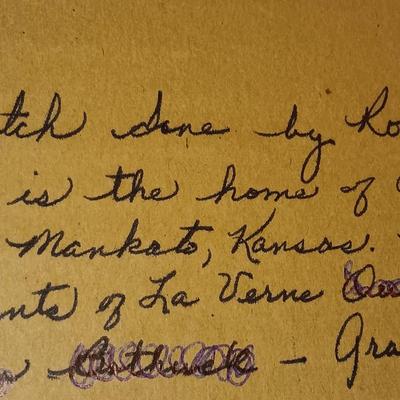 tch done by Ro
is the home of
Mankato, Kansas.
nts of La Verne
— Gra